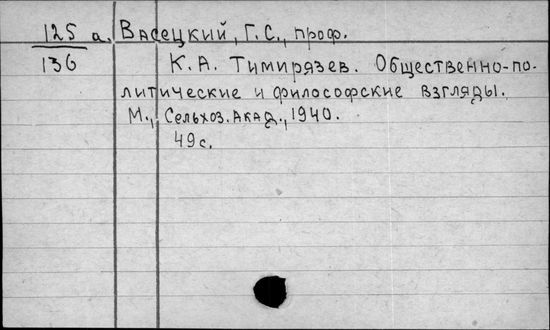 125 а. Васецкий, Г.С., проф.
136 К. А. Тимирязев. Общественно-по-
литические и философские взгляды.
М., Сельхоз. Акад., 1940.
49 с.